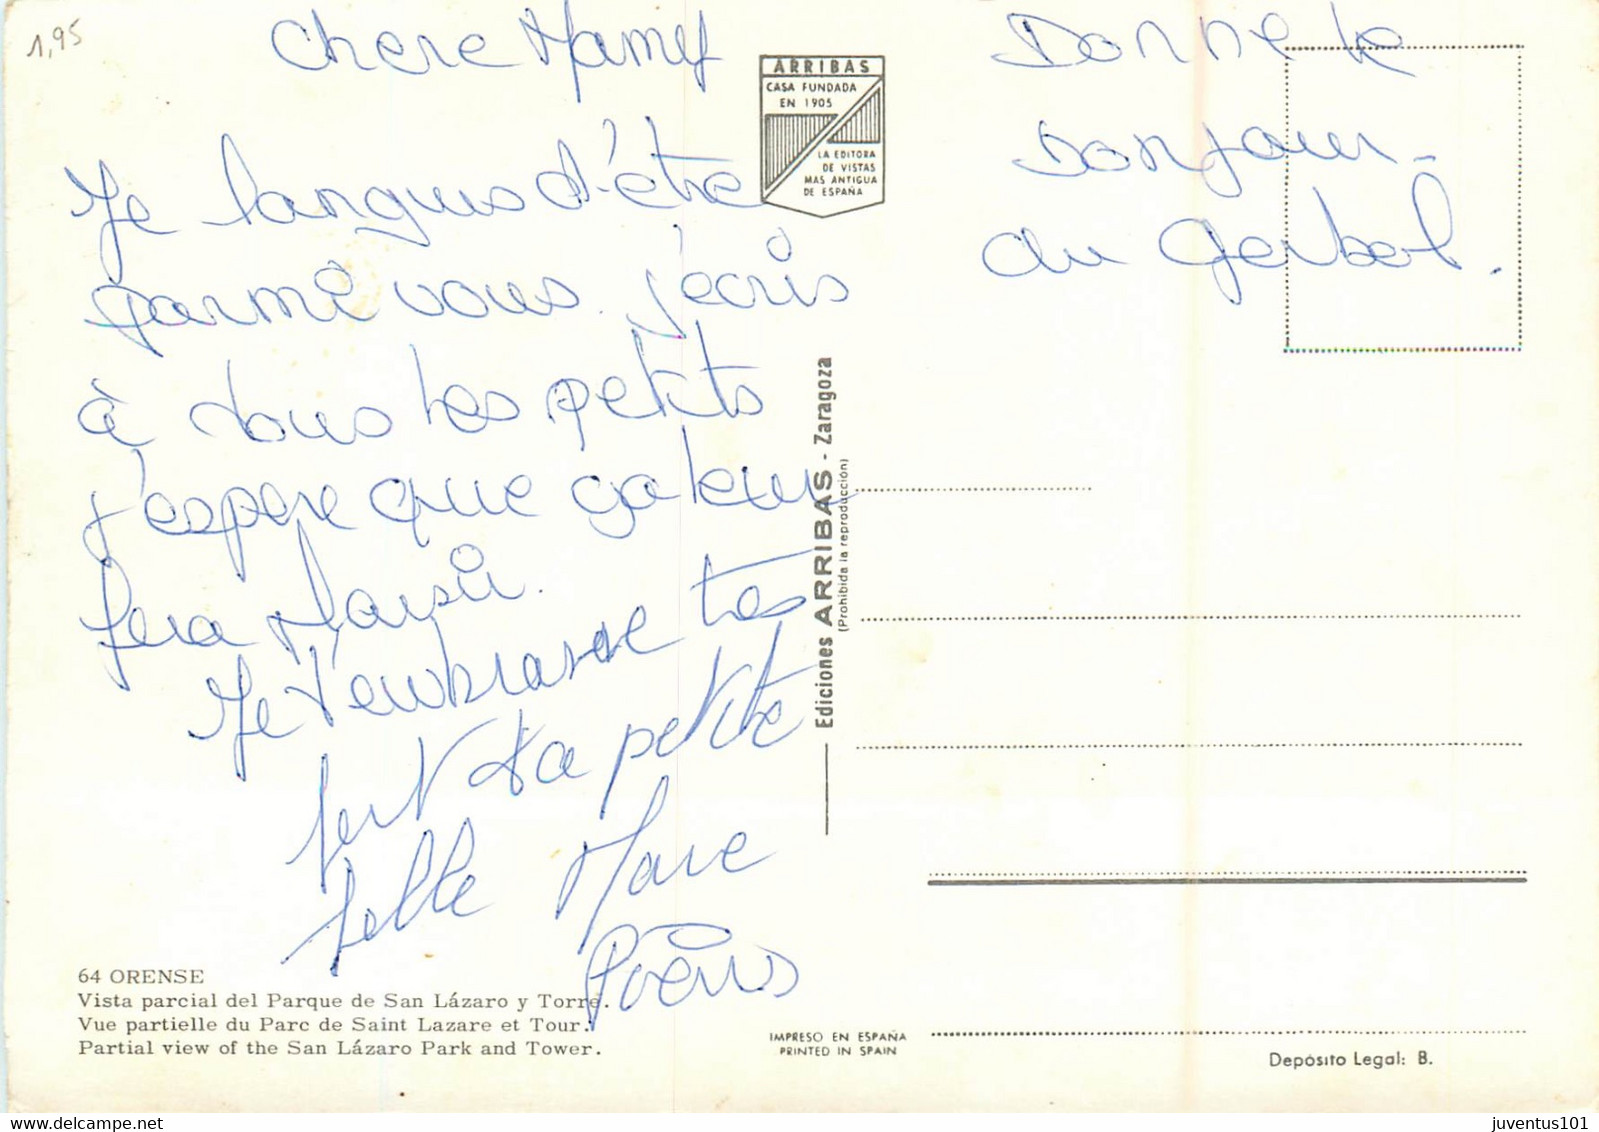 1,95
Chere Mamy
Je languis d'être
parmi vous. J'écris
à tous les petits
j'espere que ça leur
fera plaisir.
Je t'embrasse très
fort ta petite
fille
Donne le
bonjour
au Gerbal.
ARRIBAS
CASA FUNDADA
EN 1905
LA EDITORA
DE VISTAS
MAS ANTIGUA
DE ESPAÑA
Ediciones ARRIBAS - Zaragoza
(Prohibida la reproducción)
64 ORENSE
Vista parcial del Parque de San Lázaro y Torre.
Vue partielle du Parc de Saint Lazare et Tour.
Partial view of the San Lázaro Park and Tower.
IMPRESO EN ESPAÑA
PRINTED IN SPAIN
Depósito Legal: B.
juventus101